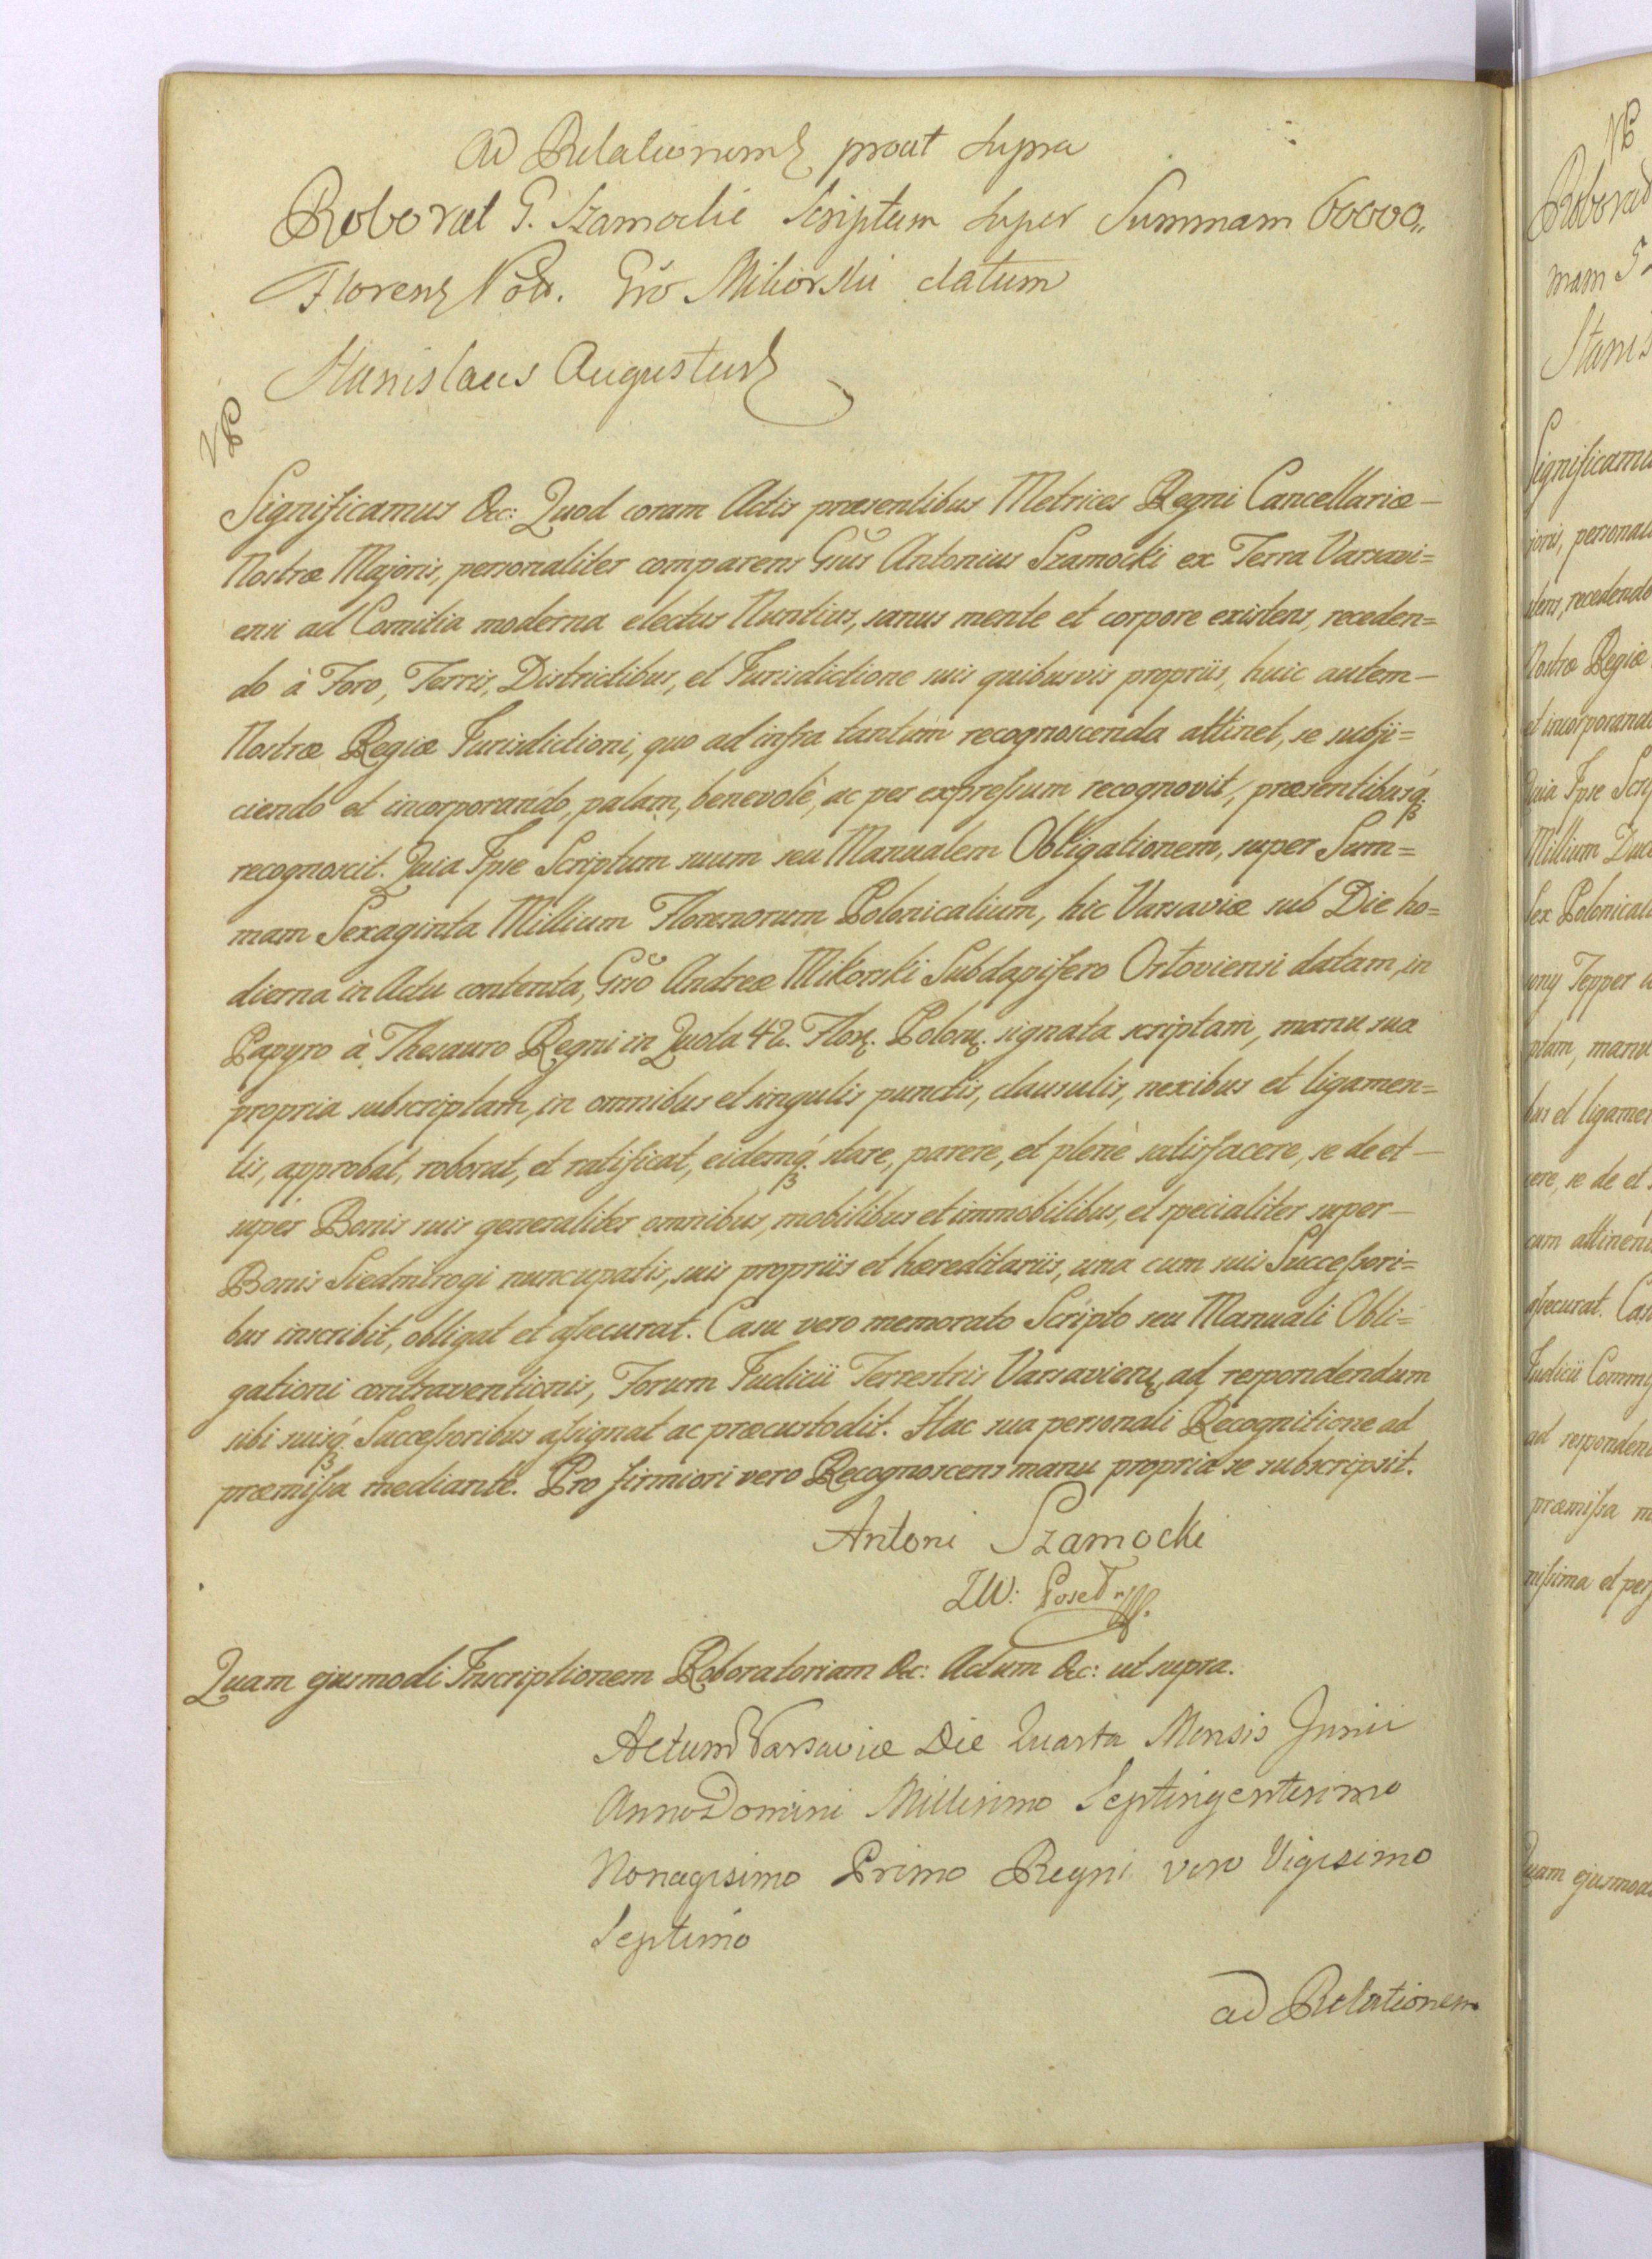 ad Relationem prout supra
Roborat G. Szamocki Scriptum super Summam 60000,,
Floren Pol. Gso Mikorski datum
Stanislaus Augustus
Significamus &c: Quod coram Actis præsentibus Metrices Regni Cancellariæ —
Nostræ Majoris, personaliter comparens Gsus Antonius Szamocki ex Terra Varsavi=
ensi ad Comitia moderna electus Nuntius, sanus mente et corpore existens, receden=
do à Foro, Terris, Districtibus, et Jurisdictione suis quibusvis propriis, huic autem —
Nostræ Regiæ Jurisdictioni, quo ad infra tantum recognoscenda attinet, se subji=
ciendo et incorporando, palam, benevolè, ac per expressum recognovit, præsentibusq́ꝫ
recognoscit. Quia Ipse Scriptum suum seu Manualem Obligationem, super Sum=
mam Sexaginta Millium Florenorum Polonicalium, hic Varsaviæ sub Die ho=
dierna in Actu contenta, Gsso Andreæ Mikorski Subdapifero Ostoviensi datam, in
Papyro à Thesauro Regni in Quota 42. Flor. Polon. signata scriptam, manu sua
propria subscriptam, in omnibus et singulis punctis, clausulis, nexibus et ligamen=
tis, approbat, roborat, et ratificat, eidemq́ꝫ stare, parere, et plenè satisfacere, se de et —
super Bonis suis generaliter omnibus, mobilibus et immobilibus, et specialiter super —
Bonis Siedmirogi nuncupatis, suis propriis et hæreditariis, una cum suis Successori=
bus inscribit, obligat et assecurat. Casu vero memorato Scripto seu Manuali Obli=
gationi contraventionis, Forum Judicii Terrestris Varsavien, ad respondendum
sibi suisq́ꝫ Successoribus assignat ac præcustodit. Hac sua personali Recognitione ad
præmissa mediante. Pro firmiori vero Recognoscens manu propria se subscripsit.
Antoni Szamocki
ZW: Poseł
Quam ejusmodi Inscriptionem Roboratoriam &c: Actum &c: ut supra.
Actum Varsaviæ Die Quarta Mensis Junii
Anno Domini Millesimo Septingentesimo
Nonagesimo Primo Regni vero Vigesimo
Septimo
ad Relationem